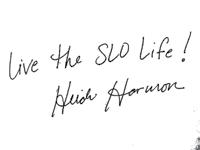 Live the SLO Life!
Heidi Harmon